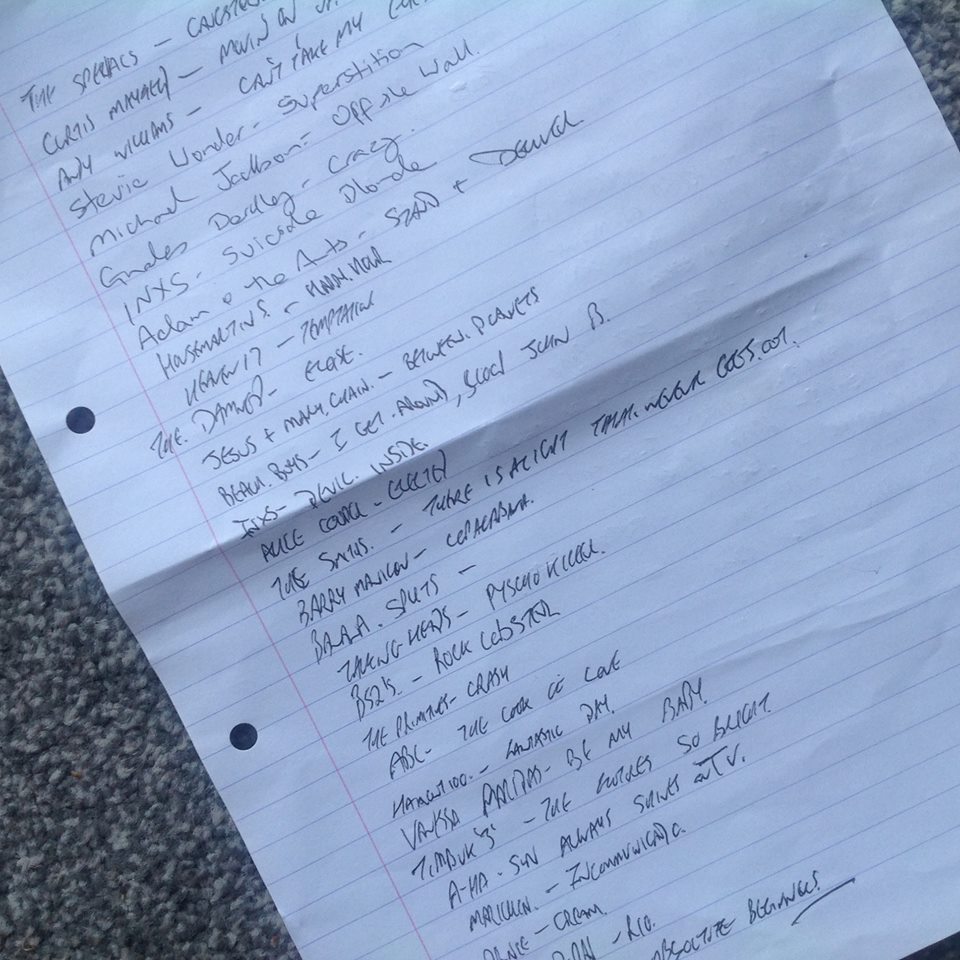 THE SPECIALS -
CURTIS MAYFIELD - MOVIN ON UP
ANDY WILLIAMS - CAN'T TAKE MY EYES
Stevie Wonder - Superstition
Michael Jackson - Off the Wall.
Gnarles Barkley - Crazy.
INXS - Suicide Blonde
Adam & the Ants - STAND + DELIVER
HOUSEMARTINS -
HEAVEN 17 - TEMPTATION
THE DAMNED - ELOISE.
JESUS + MARY CHAIN. - BETWEEN PLANETS
BEACH BOYS - I GET AROUND, SLOOP JOHN B.
INXS - DEVIL INSIDE.
ALICE COOPER - ELECTED
THE SMITHS. - THERE IS A LIGHT THAT NEVER GOES OUT.
BARRY MANILOW - COPACABANA.
BANANA SPLITS -
TALKING HEADS - PYSCHO KILLER.
B52'S. - ROCK LOBSTER
THE PRIMITIVES - CRASH
ABC - THE LOOK OF LOVE
HAIRCUT 100. - FANTASTIC DAY.
VANESSA PARADIS - BE MY BABY
TIMBUK '3' - THE FUTURES SO BRIGHT.
A-HA - SUN ALWAYS SHINES ON T.V.
MARILLION. - INCOMMUNICADO.
PRINCE - CREAM.
DURAN - RIO.
ABSOLUTE BEGINNERS!